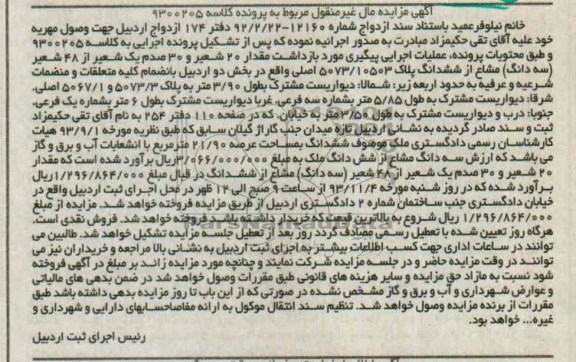 آگهی مزایده مال غیرمنقول مربوط به پرونده کلاسه ۹۳۰۰۲۰۵
خانم نیلوفرعمید باستناد سند ازدواج شماره ۱۲۱۶۰-۹۲/۲/۲۲ دفتر ۱۷۴ ازدواج اردبیل جهت وصول مهریه
خود علیه آقای تقی حکیمزاد مبادرت به صدور اجرائیه نموده که پس از تشکیل پرونده اجرایی به کلاسه ۹۳۰۰۲۰۵
و طبق محتویات پرونده، عملیات اجرایی پیگیری مورد بازداشت مقدار ۲۰ شعیر و ۳۰ صدم یک شعیر از ۴۸ شعیر
(سه دانگ) مشاع از ششدانگ پلاک ۵۰۷۳/۱۰۵۰۳ اصلی واقع در بخش دو اردبیل بانضمام کلیه متعلقات و منضمات
شرعیه و عرفیه به حدود اربعه زیر: شمالا: دیواریست مشترک بطول ۳/۹۰ متر به پلاک ۵۰۷۳/۳ و ۵۰۶۷/۱ اصلی.
شرقا: دیواریست مشترک به طول ۵/۸۵ متر بشماره سه فرعی. غربا دیواریست مشترک بطول ۶ متر بشماره یک فرعی.
جنوبا: درب و دیواریست مشترک به طول ۳/۵۰ متر به خیابان. که در صفحه ۱۱۰ دفتر ۲۵۴ به نام آقای تقی حکیمزاد
ثبت و سند صادر گردیده به نشانی اردبیل تازه میدان جنب گاراژ گیلان سابق که طبق نظریه مورخه ۹۳/۹/۱ هیات
کارشناسان رسمی دادگستری ملک موصوف ششدانگ بمساحت عرصه ۲۱/۹۰ مترمربع با انشعابات آب و برق و گاز
می باشد که ارزش سه دانگ مشاع از شش دانگ ملک به مبلغ ۳/۰۶۶/۰۰۰/۰۰۰ ریال برآورد شده است که مقدار
۲۰ شعیر و ۳۰ صدم یک شعیر از ۴۸ شعیر (سه دانگ) مشاع از ششدانگ در قبال مبلغ ۱/۲۹۶/۸۶۴/۰۰۰ ریال
برآورد شده که در روز شنبه مورخه ۹۳/۱۱/۴ از ساعت ۹ صبح الی ۱۲ ظهر در محل اجرای ثبت اردبیل واقع در
خیابان دادگستری جنب ساختمان شماره ۲ دادگستری اردبیل از طریق مزایده فروخته خواهد شد. مزایده از مبلغ
۱/۲۹۶/۸۶۴/۰۰۰ ریال شروع به بالاترین قیمت که خریدار داشته باشد فروخته خواهد شد. فروش نقدی است.
هرگاه روز تعیین شده با تعطیل رسمی مصادف گردد روز بعد از تعطیل جلسه مزایده تشکیل خواهد شد. طالبین می
توانند در ساعات اداری جهت کسب اطلاعات بیشتر به اجرای ثبت اردبیل به نشانی بالا مراجعه و خریداران نیز می
توانند در وقت مزایده حاضر و در جلسه مزایده شرکت نمایند و چنانچه مورد مزایده زائد بر مبلغ در آگهی فروخته
شود نسبت به مازاد حق مزایده و سایر هزینه های قانونی طبق مقررات وصول خواهد شد در ضمن بدهی های مالیاتی
و عوارض شهرداری و آب و برق و گاز مشخص نشده در صورتی که از این باب تا روز مزایده بدهی داشته باشد طبق
مقررات از برنده مزایده وصول خواهد شد. تنظیم سند انتقال موکول به ارائه مفاصاحسابهای دارایی و شهرداری و
غیره... خواهد بود.
رئیس اجرای ثبت اردبیل